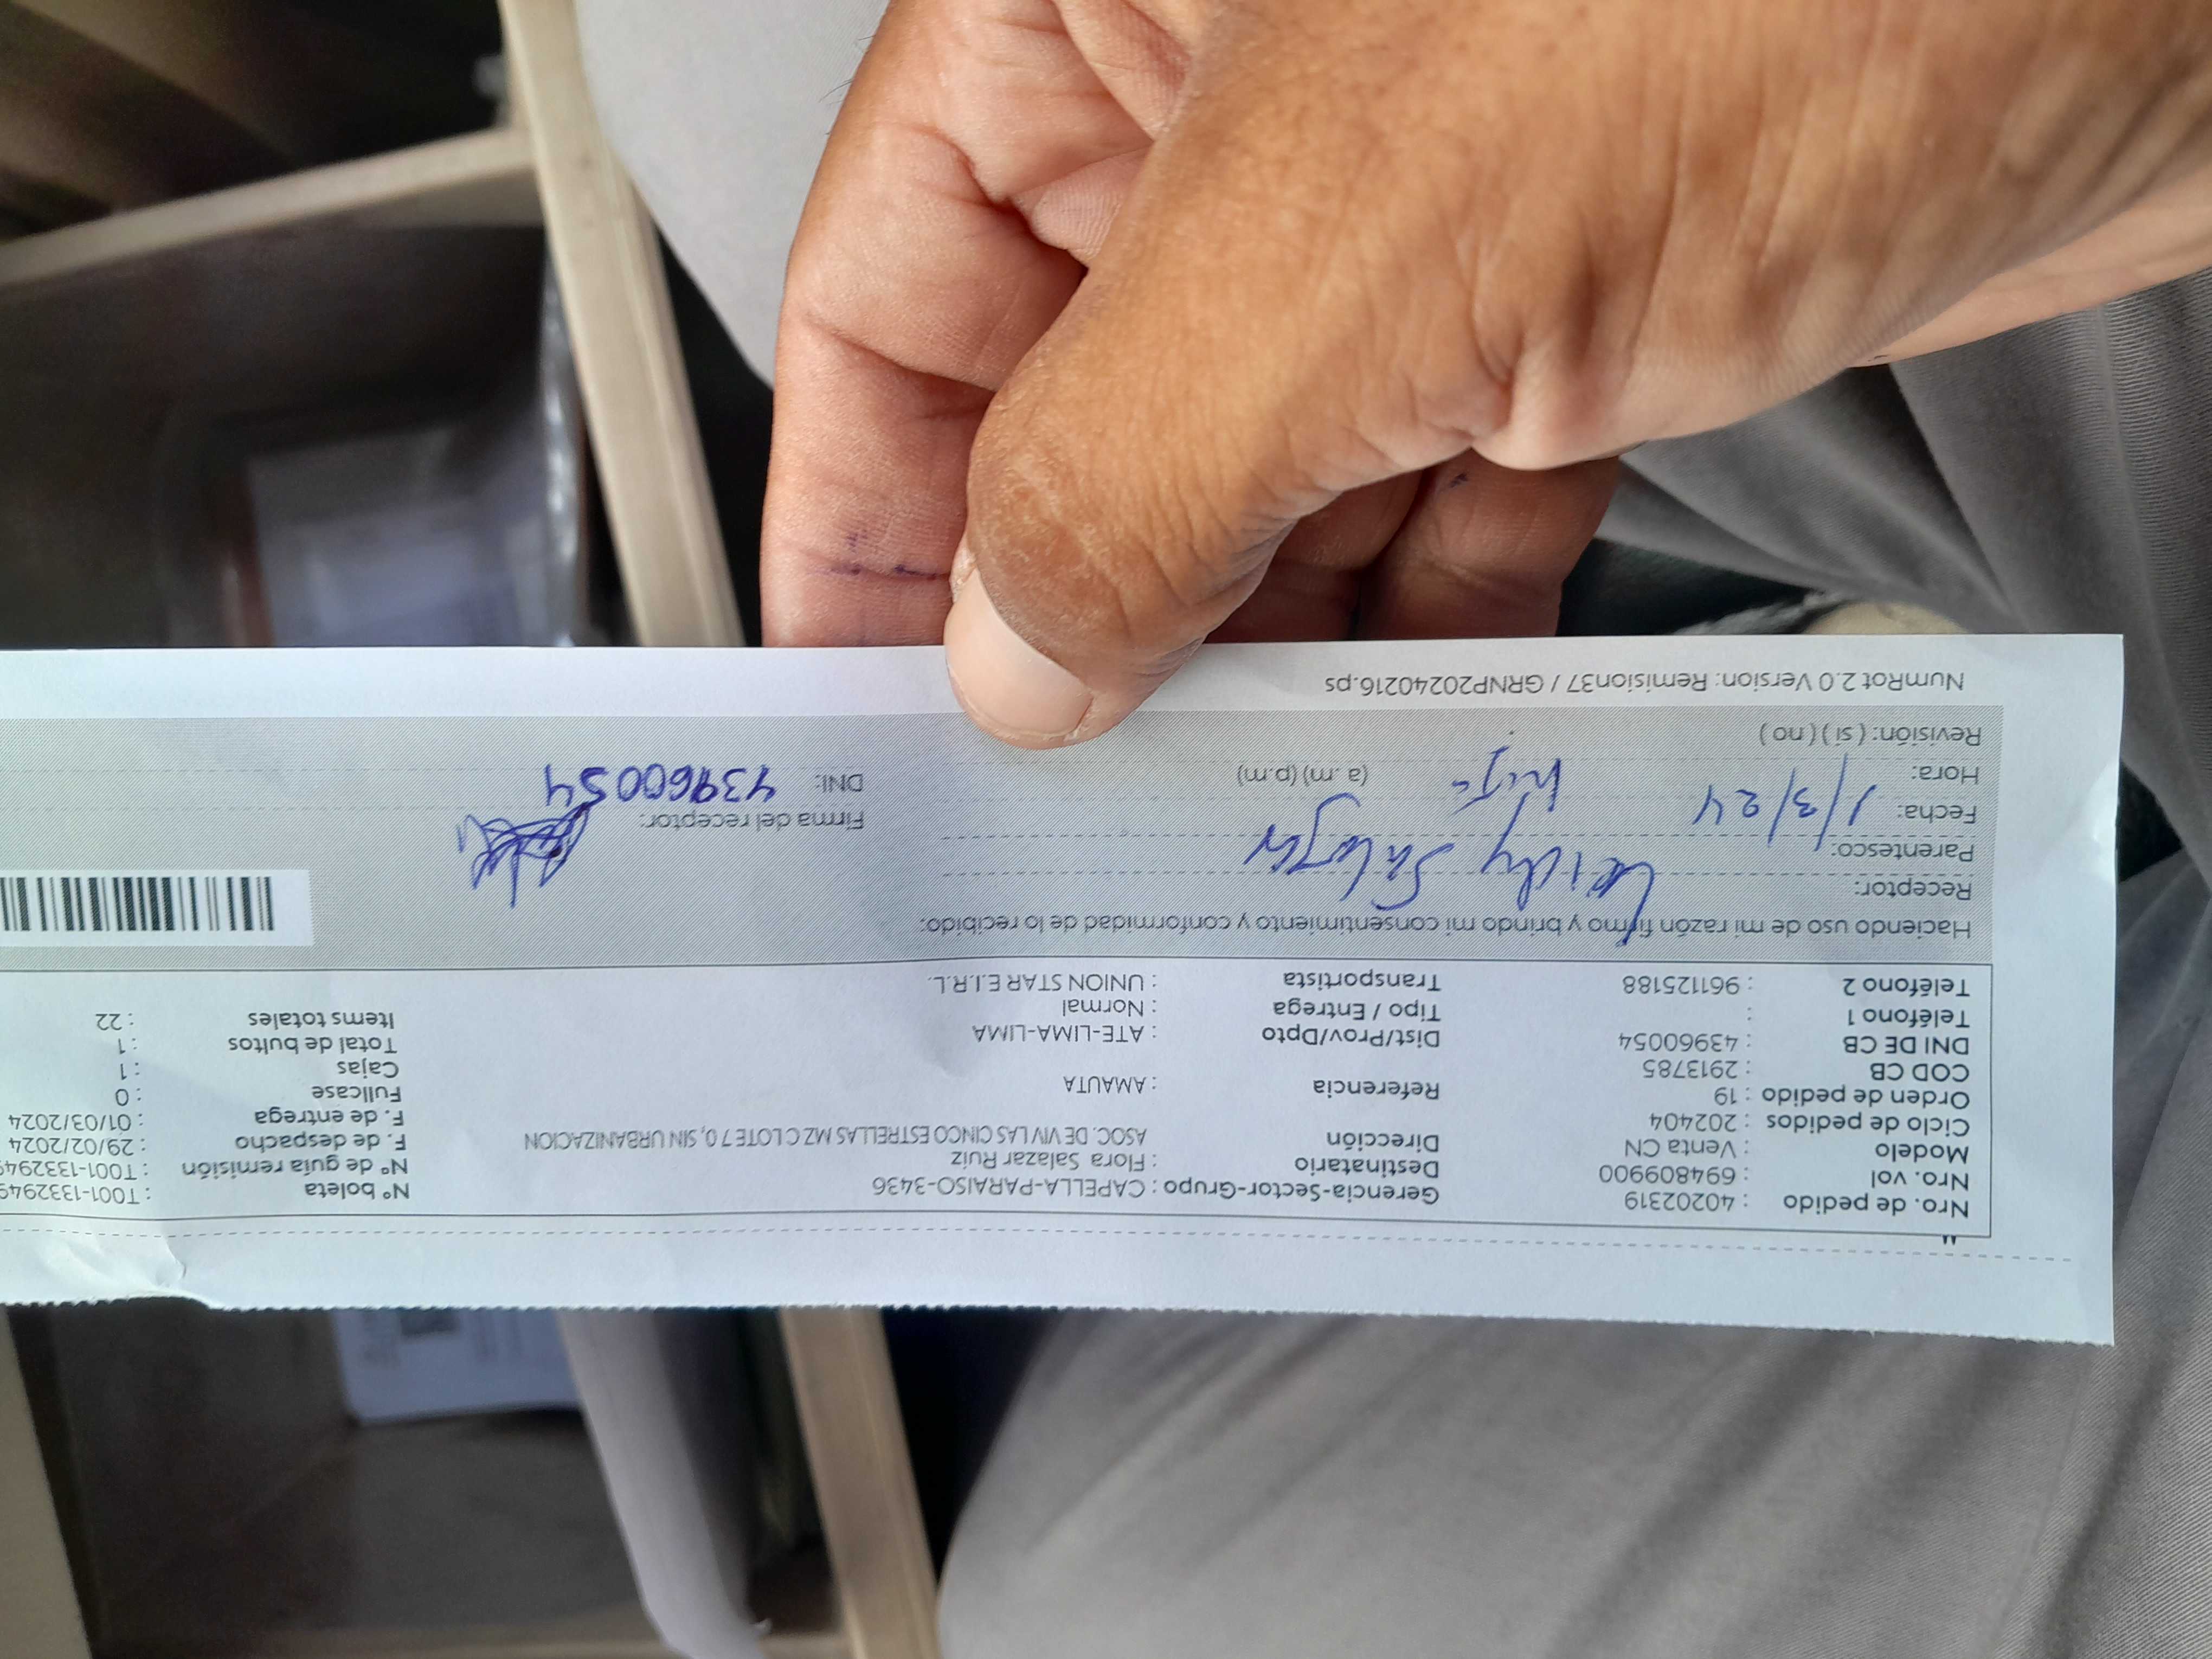 Nro. de pedido : 40202319 Gerencia-Sector-Grupo : CAPELLA-PARAISO-3436 N° boleta : T001-1332949
Nro. vol : 694809900 Destinatario : Flora Salazar Ruiz N° de guía remisión : T001-1332949
Modelo : Venta CN Dirección ASOC. DE VIV LAS CINCO ESTRELLAS MZ C LOTE 7 0, SIN URBANIZACION F. de despacho : 29/02/2024
Ciclo de pedidos : 202404 F. de entrega : 01/03/2024
Orden de pedido : 19 Referencia : AMAUTA Fullcase : 0
COD CB : 2913785 Cajas : 1
DNI DE CB : 43960054 Dist/Prov/Dpto : ATE-LIMA-LIMA Total de bultos : 1
Teléfono 1 : Tipo / Entrega : Normal Items totales : 22
Teléfono 2 : 961125188 Transportista : UNION STAR E.I.R.L.
Haciendo uso de mi razón firmo y brindo mi consentimiento y conformidad de lo recibido:
Receptor: Leidy Salazar
Parentesco:
Fecha: 1/3/24 hija Firma del receptor:
Hora: (a.m) (p.m) DNI: 43960054
Revisión: ( si ) ( no )
NumRot 2.0 Version: Remision37 / GRNP20240216.ps